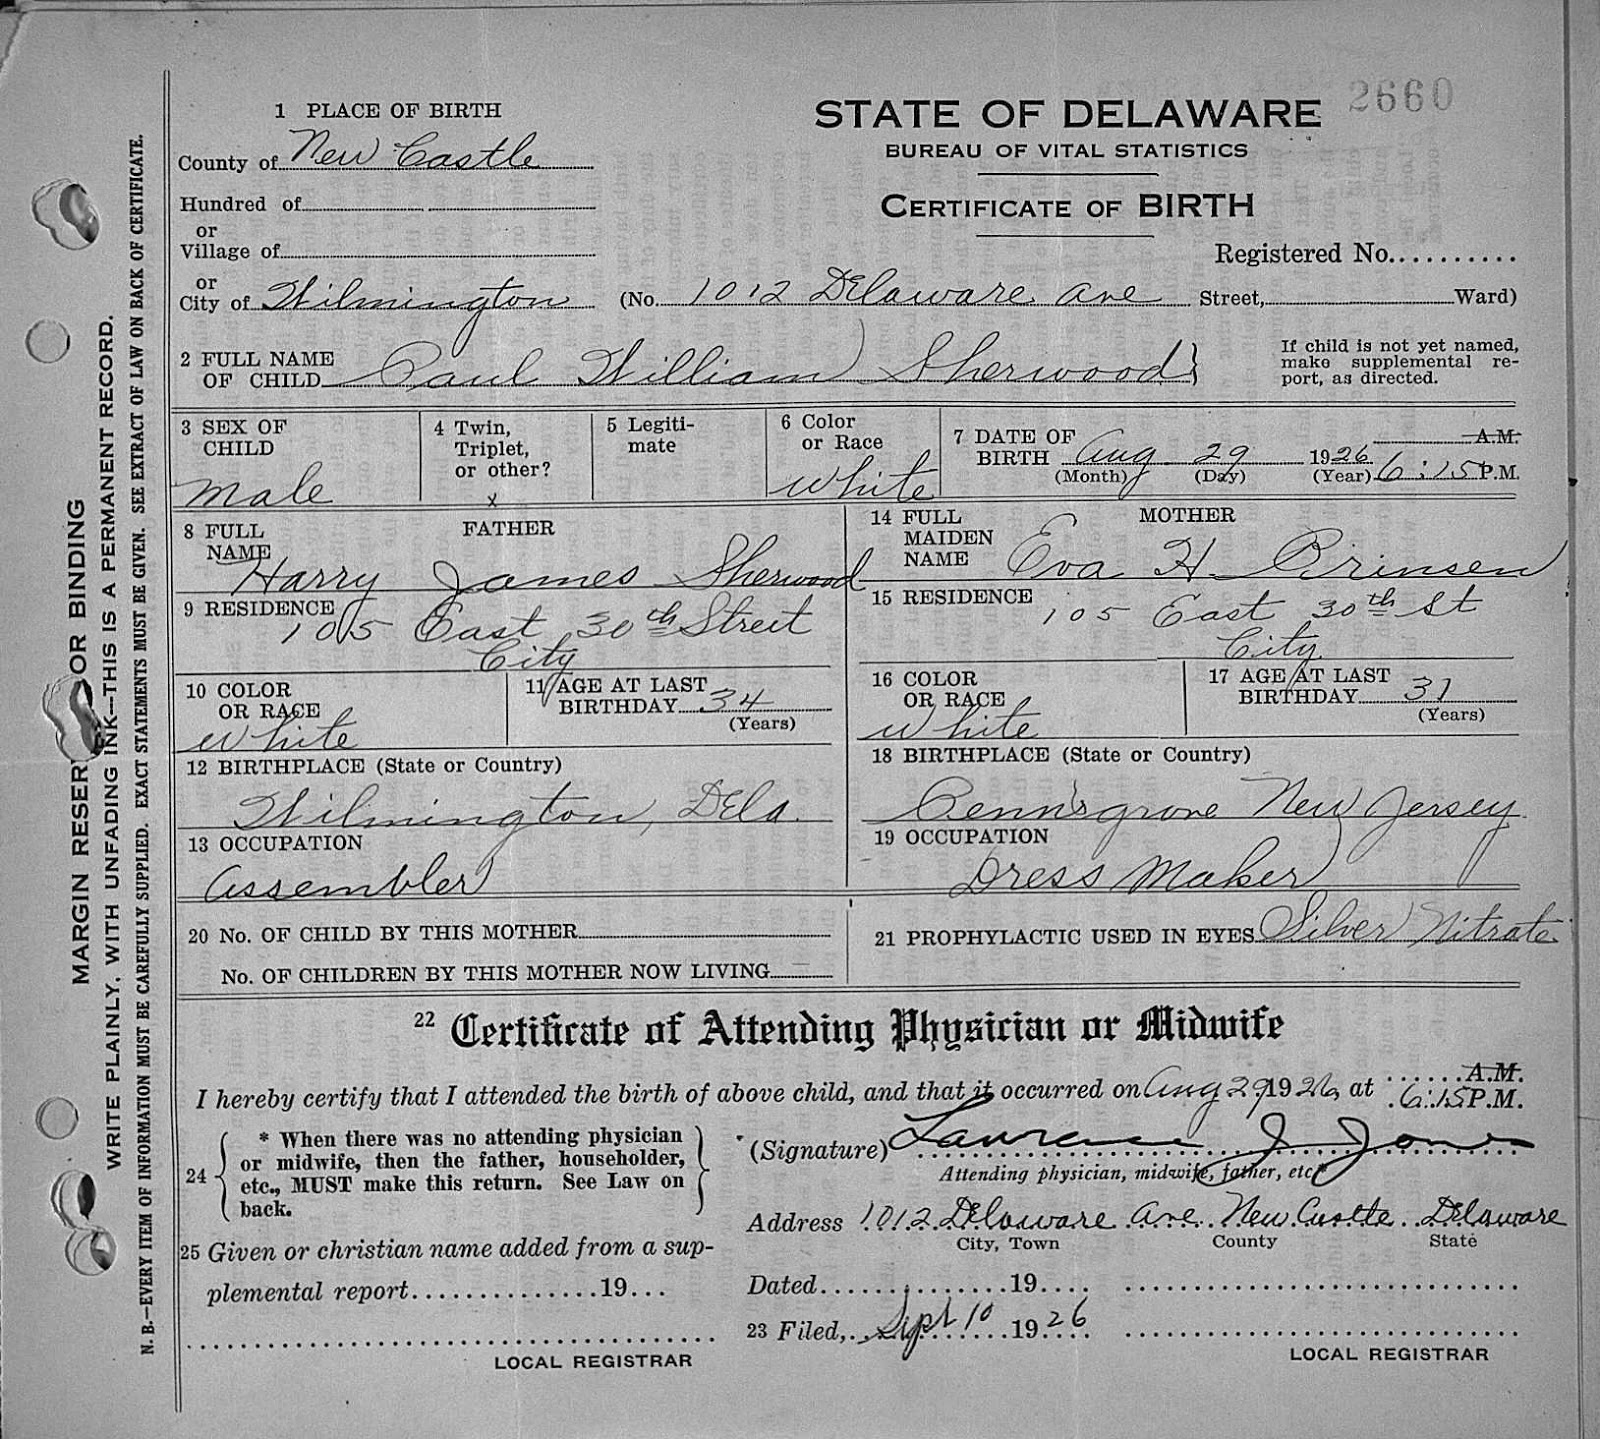 2660
1 PLACE OF BIRTH
County of New Castle
Hundred of
or
Village of
or
City of Wilmington (No. 1012 Delaware Ave Street, Ward)
STATE OF DELAWARE
BUREAU OF VITAL STATISTICS
CERTIFICATE OF BIRTH
Registered No..........
2 FULL NAME OF CHILD Paul William Sherwood
If child is not yet named,
make supplemental re-
port, as directed.
3 SEX OF CHILD
Male
4 Twin, Triplet, or other?
x
5 Legiti-
mate
6 Color or Race
White
7 DATE OF BIRTH Aug 29 1926 6:15 P.M.
A.M.
(Month) (Day) (Year)
FATHER
8 FULL NAME
Harry James Sherwood
9 RESIDENCE
105 East 30th Street
City
10 COLOR OR RACE
White
11 AGE AT LAST BIRTHDAY 34
(Years)
12 BIRTHPLACE (State or Country)
Wilmington, Dela.
13 OCCUPATION
Assembler
MOTHER
14 FULL MAIDEN NAME
Eva H. Brinsen
15 RESIDENCE
105 East 30th St
City
16 COLOR OR RACE
White
17 AGE AT LAST BIRTHDAY 31
(Years)
18 BIRTHPLACE (State or Country)
Penn'sgrove New Jersey
19 OCCUPATION
Dress Maker
20 No. OF CHILD BY THIS MOTHER
No. OF CHILDREN BY THIS MOTHER NOW LIVING
21 PROPHYLACTIC USED IN EYES Silver Nitrate
22 Certificate of Attending Physician or Midwife
I hereby certify that I attended the birth of above child, and that it occurred on Aug 29, 1926, at 6:15 P.M.
A.M.
24 * When there was no attending physician
or midwife, then the father, householder,
etc., MUST make this return. See Law on
back.
(Signature) Lawrence J. Jones
Attending physician, midwife, father, etc.*
Address 1012 Delaware Ave. New Castle Delaware
City, Town County State
25 Given or christian name added from a sup-
plemental report...............19...
LOCAL REGISTRAR
Dated...............19....
23 Filed, Sept 10 1926
LOCAL REGISTRAR
MARGIN RESER OR BINDING
WRITE PLAINLY, WITH UNFADING INK—THIS IS A PERMANENT RECORD.
N. B.—EVERY ITEM OF INFORMATION MUST BE CAREFULLY SUPPLIED. EXACT STATEMENTS MUST BE GIVEN. SEE EXTRACT OF LAW ON BACK OF CERTIFICATE.